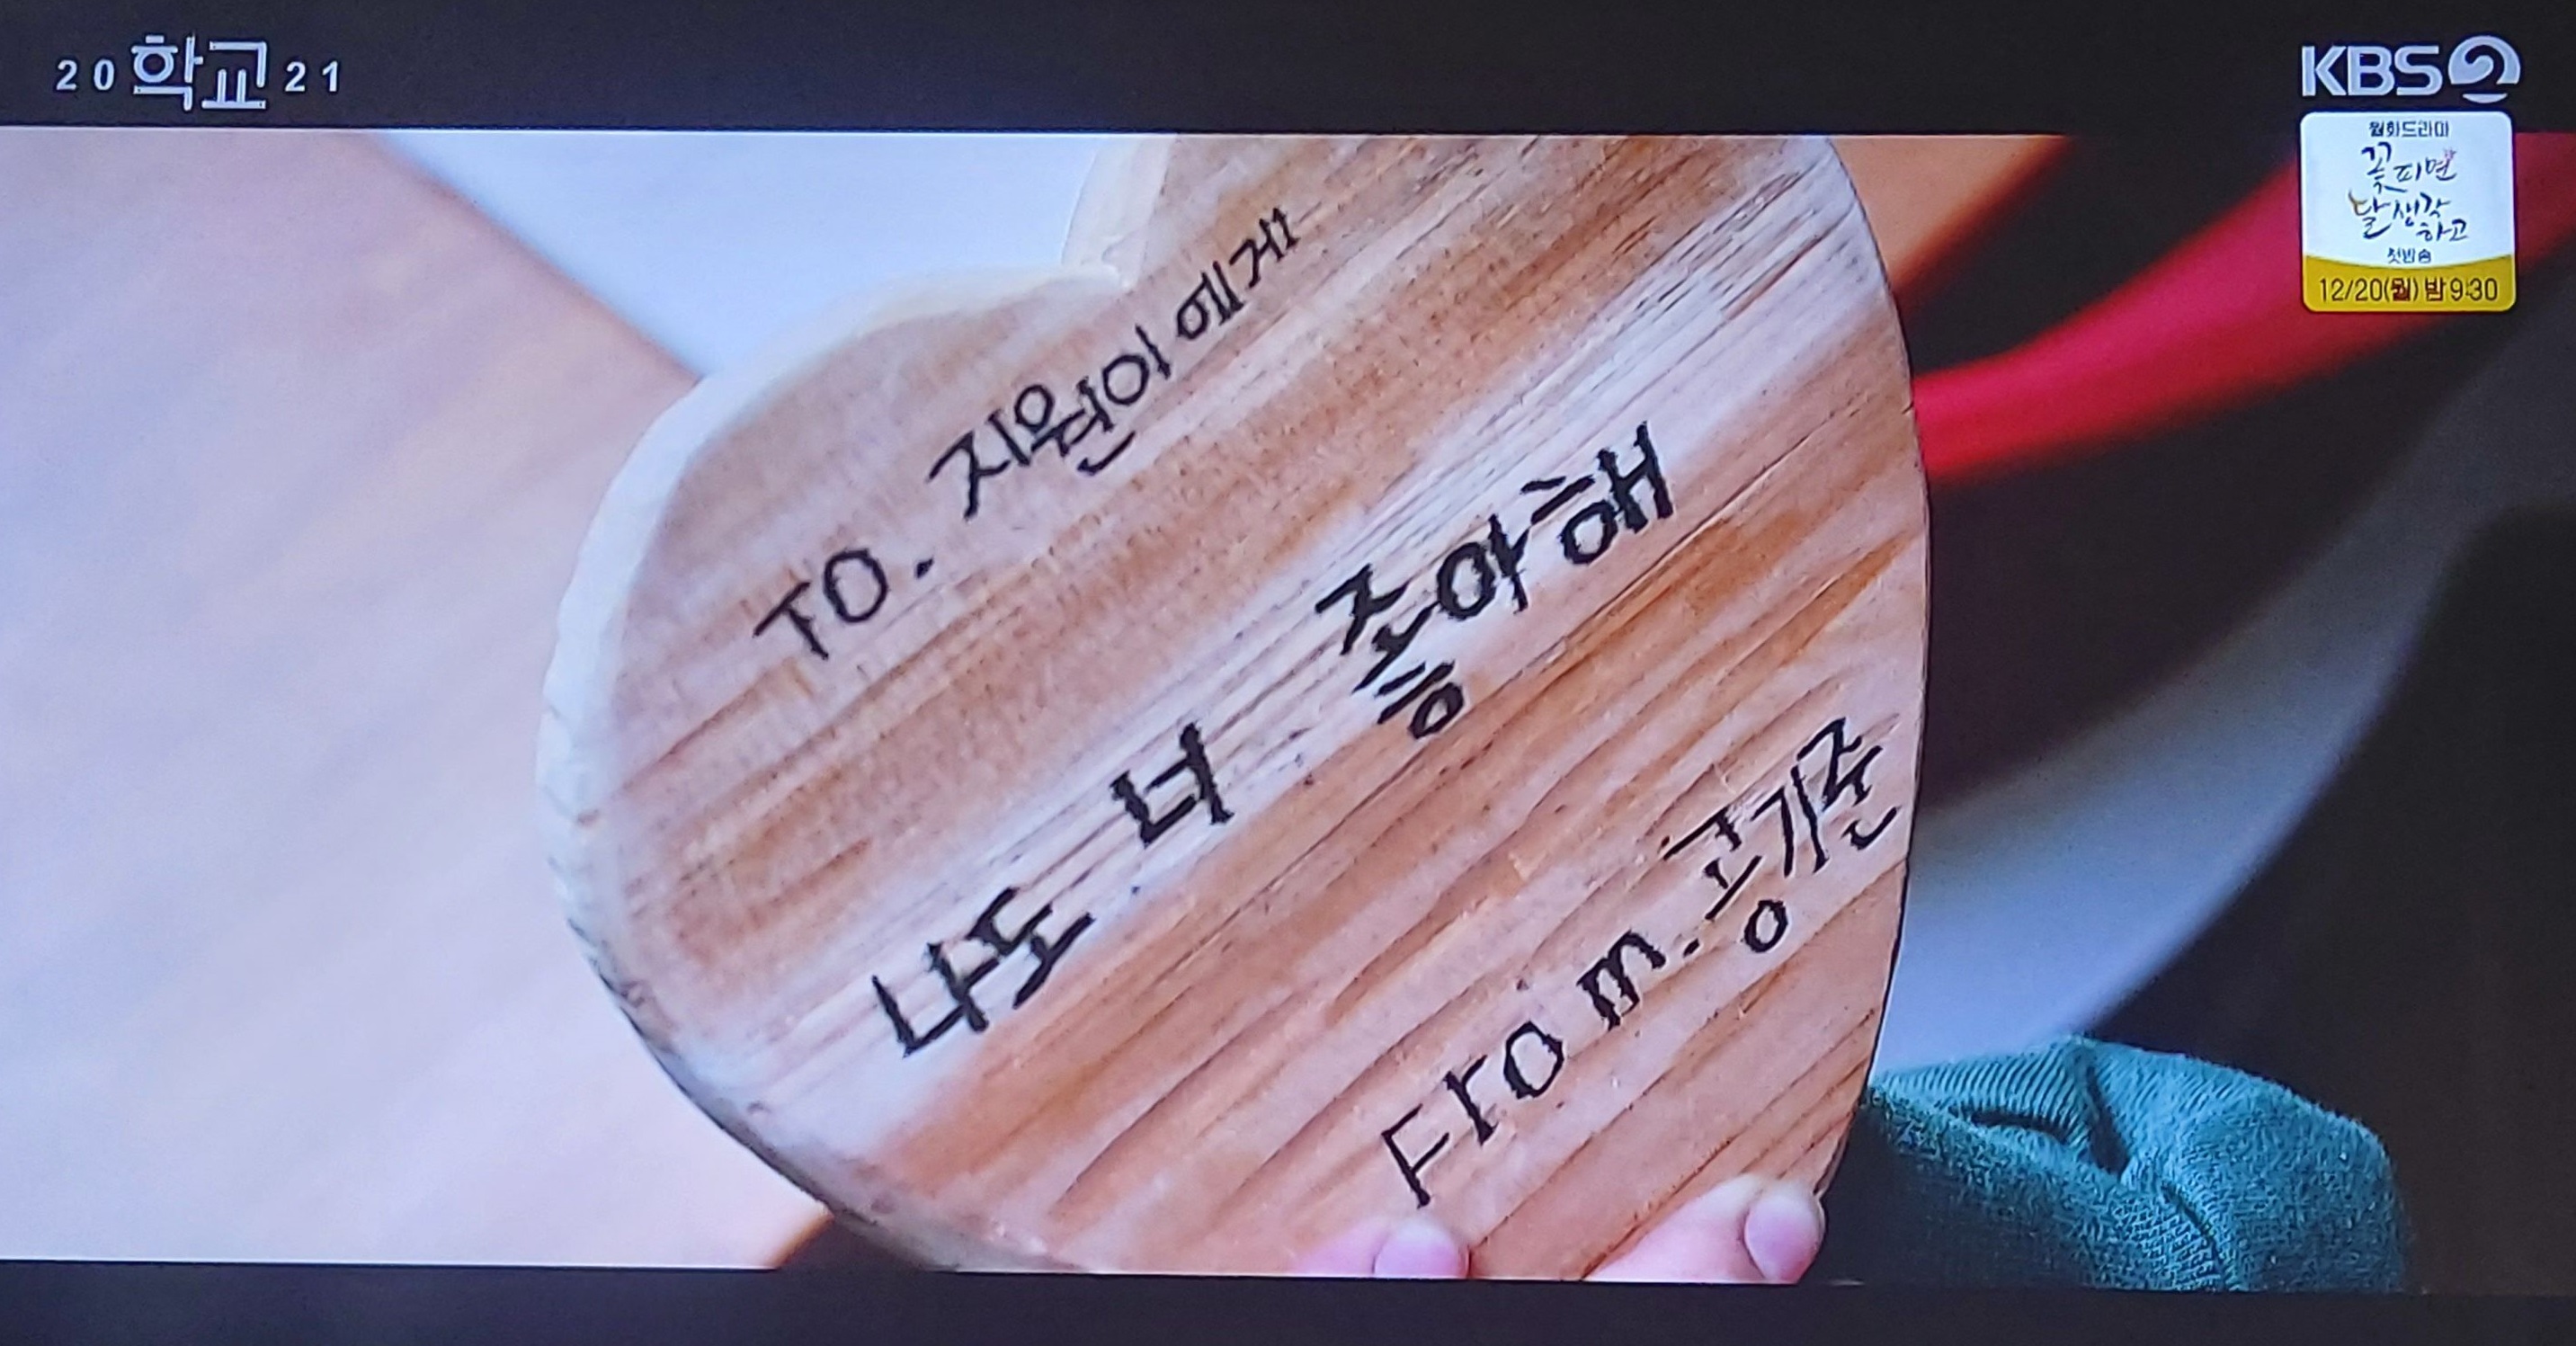 20 학교 21
KBS 2
월화드라마
꽃 피면
달 생각
하고
첫방송
12/20(월) 밤 9:30
TO. 지원이에게
나도 너 좋아해
From. 공기준